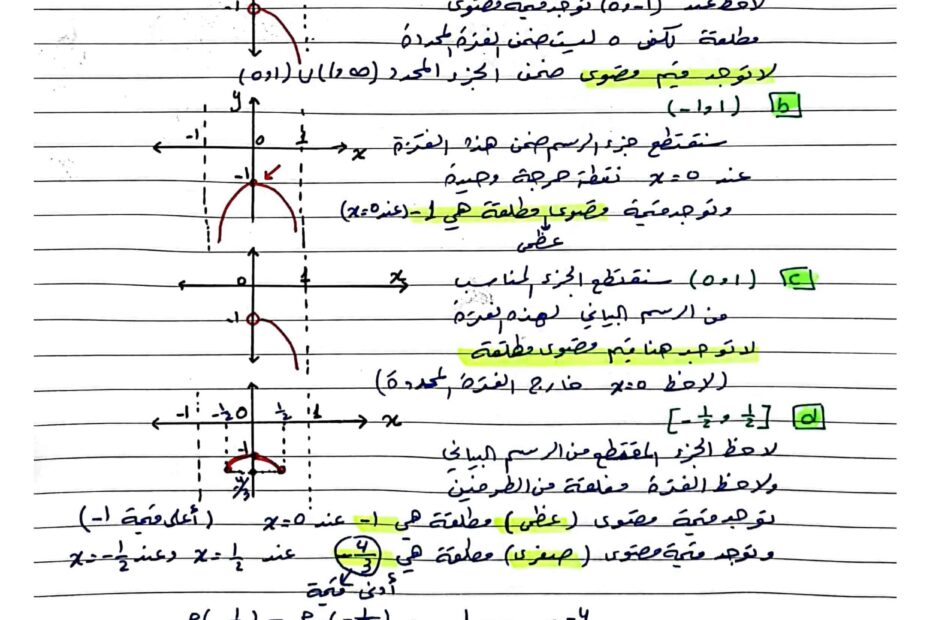 لاحظ عند (0, 1-) توجد قيمة قصوى
-1
مطلقة لكن 0 ليست ضمن الفترة المحددة
لا توجد قيم قصوى ضمن الجزء المحدد (0, 1) ∪ (1, ∞)
b (-1, 1)
y
-1 0 1 x
سنقتطع جزء الرسم ضمن هذه الفترة
-1
عند x=0 نقطة حرجة وحيدة
وتوجد قيمة قصوى مطلقة هي 1- (عند x=0)
عظمى
c (0, 1) سنقتطع الجزء المناسب
0 1 x
من الرسم البياني لهذه الفترة
-1
لا توجد هنا قيم قصوى مطلقة
(لاحظ x=0 خارج الفترة المحددة)
d [-1/2, 1/2]
-1 -1/2 0 1/2 1 x
لاحظ الجزء المقتطع من الرسم البياني
-1
ولاحظ الفترة مغلقة من الطرفين
توجد قيمة قصوى (عظمى) مطلقة هي 1- عند x=0 (أعلى قيمة 1-)
وتوجد قيمة قصوى (صغرى) مطلقة هي -4/3 عند x=1/2 وعند x=-1/2
أدنى قيمة